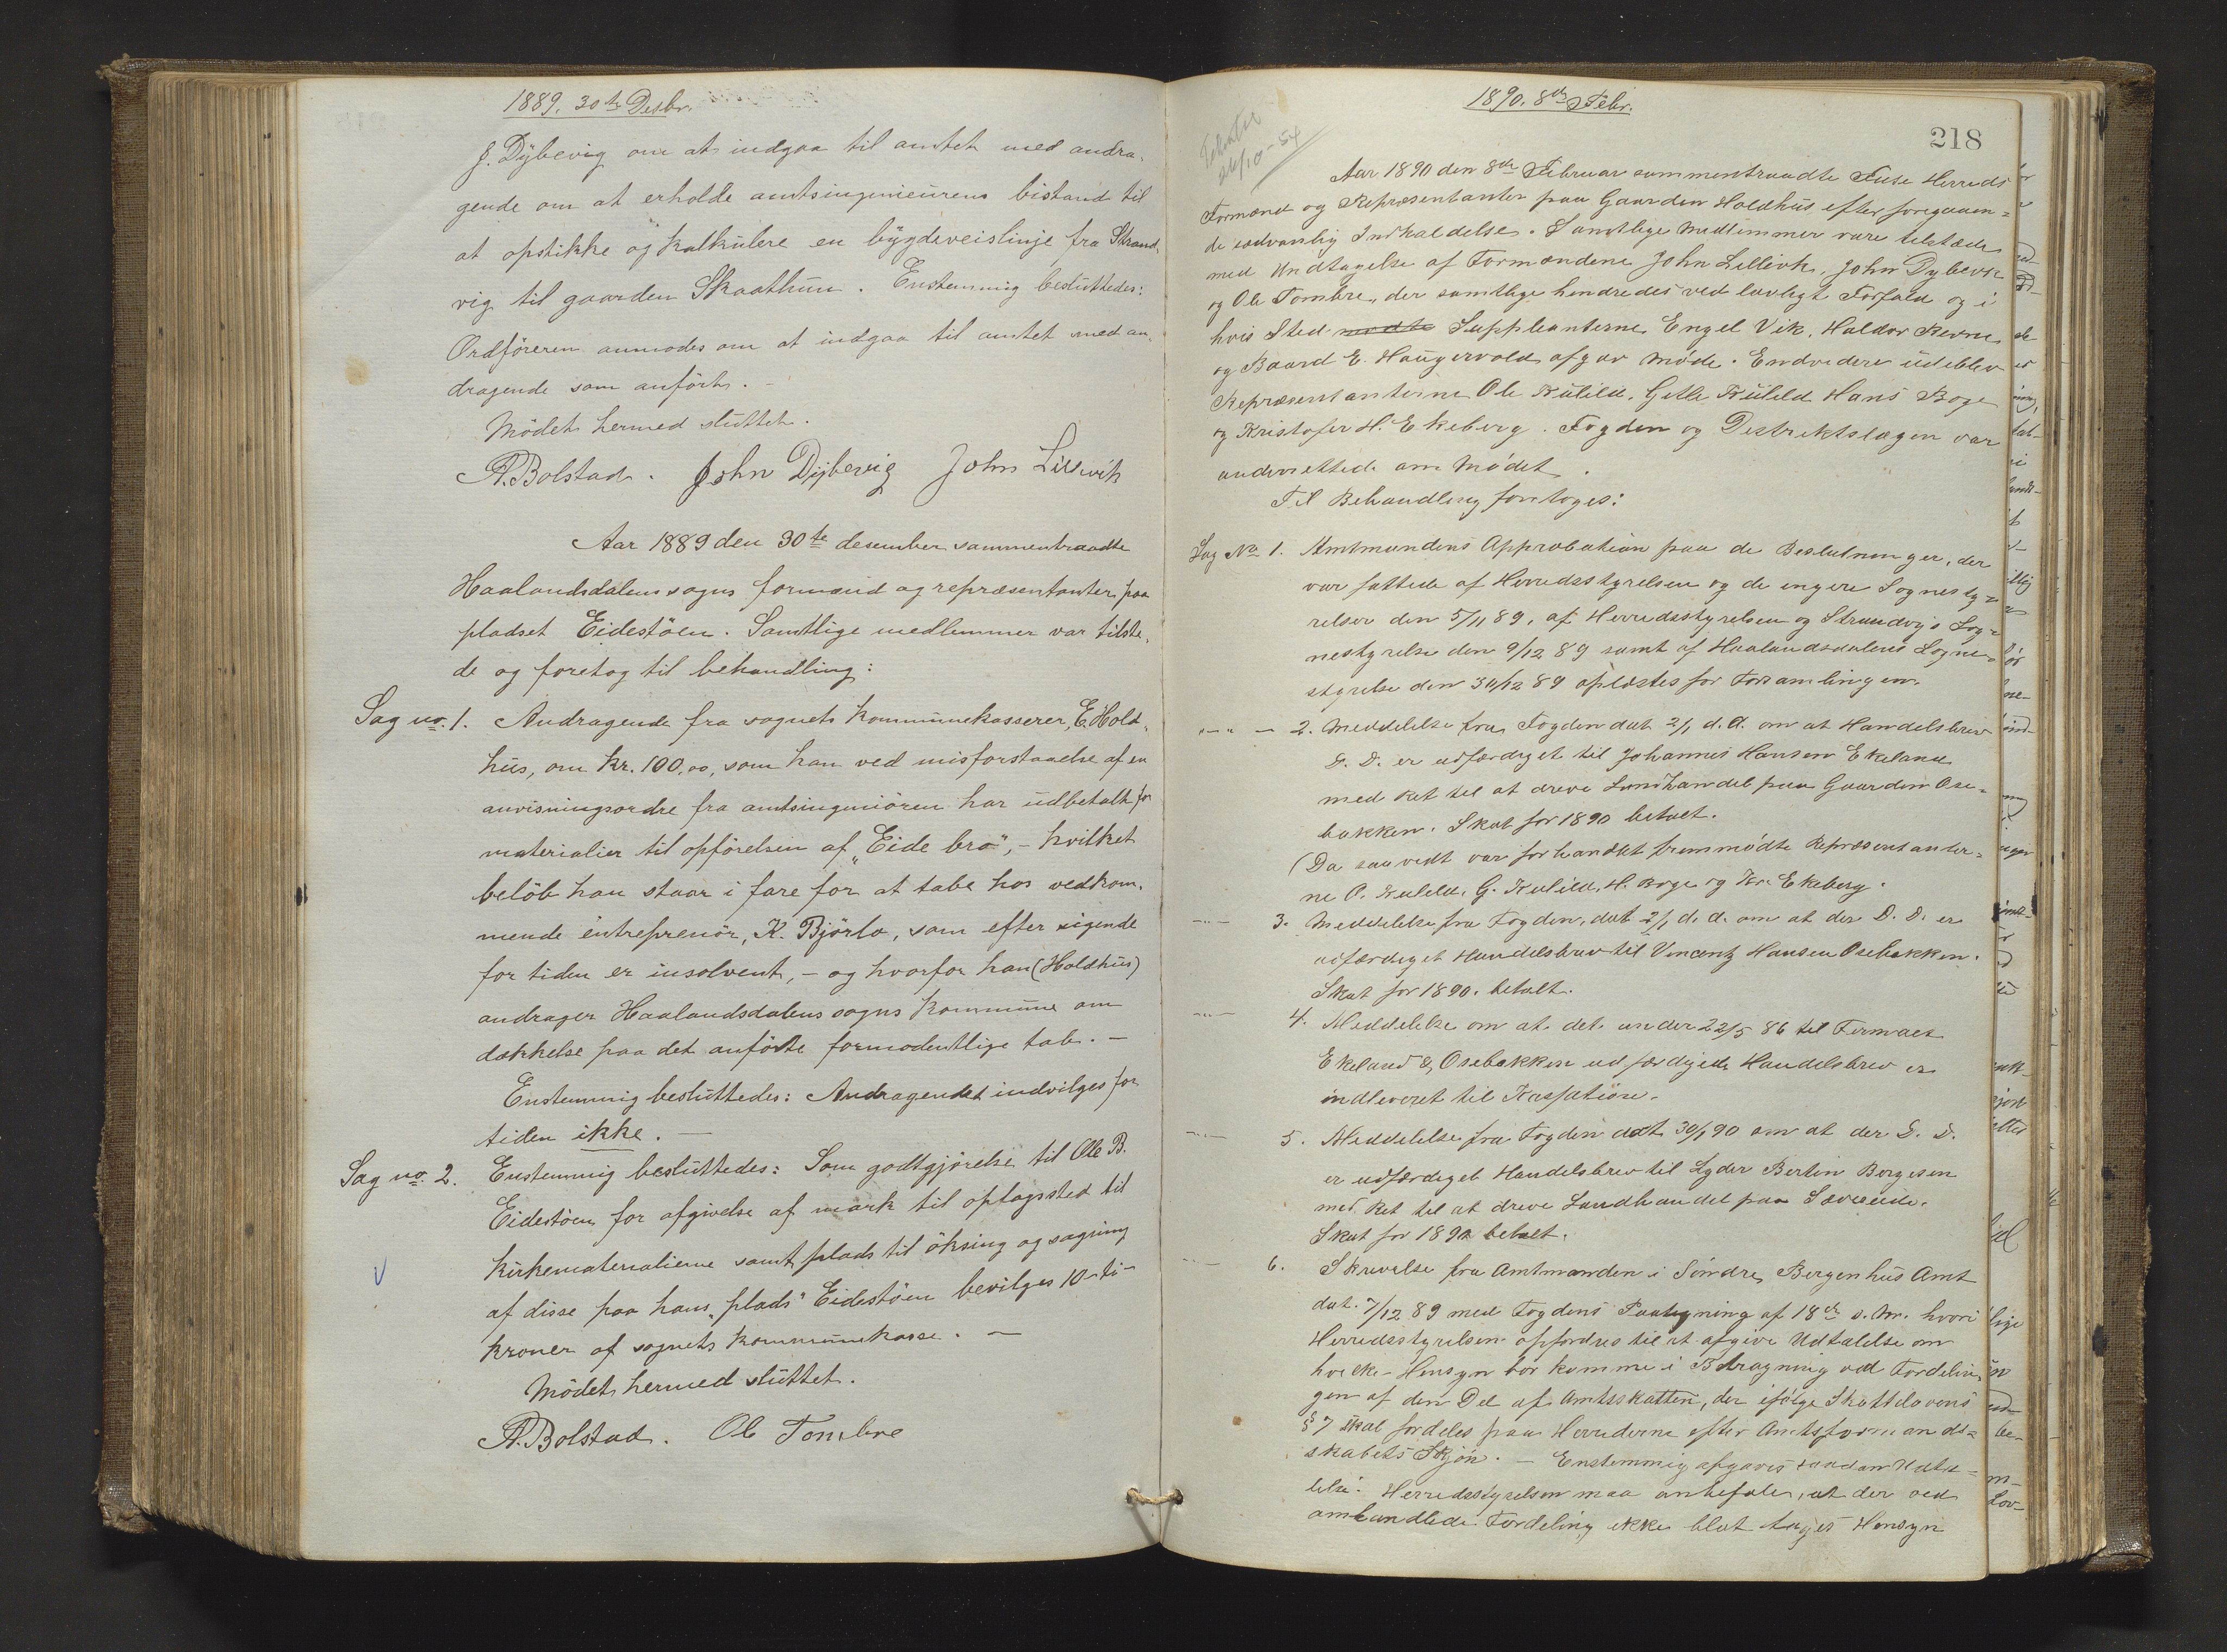 1889. 30te Desbr.
J. Dybevig om at indgaa til amtet med andra-
gende om at erholde amtsingenieurens bistand til
at opstikke og kalkulere en bygdeveislinje fra Strand-
vig til gaarden Skaathun. Enstemmig besluttedes:
Ordföreren anmodes om at indgaa til amtet med an-
dragende som anfört. -
Mödet hermed sluttet.
A. Bolstad. John Dybevig John Lillevik
Aar 1889 den 30te desember sammentraadte
Haalandsdalens sogns formænd og repræsentanter paa
pladset Eidestöen. Samtlige medlemmer var tilste-
de og foretog til behandling:
Sag no. 1. Andragende fra sognets kommunekasserer, E. Hold-
hus, om kr. 100,00, som han ved misforstaaelse af en
anvisningsordre fra amtsingeniören har udbetalt for
materialier til opförelsen af "Eide bro", - hvilket
belöb han staar i fare for at tabe hos vedkom-
mende entreprenör, K. Björlo, som efter sigende
for tiden er insolvent, - og hvorfor han (Holdhus)
andrager Haalandsdalens sogns kommune om
dækkelse paa det anförte formodentlige tab. -
Enstemmig besluttedes: Andragendet indvilges for
tiden ikke. -
Sag no. 2. Enstemmig besluttedes: Som godtgjörelse til Ole B.
Eidestöen for afgivelse af mark til oplagssted til
kirkematerialierne samt plads til öksing og sagning
af disse paa hans "plads" Eidestöen bevilges 10 - ti -
kroner af sognets kommunekasse. -
Mödet hermed sluttet.
A. Bolstad. Ole Tombre
1890. 8de Febr.
218
26/10-54
Aar 1890 den 8de Februar sammentraadte Fuse Herreds
Formænd og Repræsentanter paa Gaarden Holdhus efter foregaaen-
de sedvanlig Indkaldelse. Samtlige Medlemmer vare tilstæde
med Undtagelse af Formændene John Lillevik, John Dybevik
og Ole Tombre, der samtlige hindredes ved lovligt Forfald og i
hvis Sted mødte Suppleanterne Engel Vik, Haldor Revne
og Baard E. Haugervold afgav Møde. Endvidere udeblev
Repræsentanterne Ole Kulild, Gitle Kulild Hans Boge
og Kristofer H. Ekeberg. Fogden og Distriktslægen var
underrettede om Mødet.
Til Behandling foretoges:
Sag No 1. Amtmandens Approbation paa de Beslutninger, der
var fattede af Herredsstyrelsen og de engere Sognesty-
relser den 5/11 89, af Herredsstyrelsen og Strandvigs Sog-
nestyrelse den 9/12 89 samt af Haalandsdalens Sogne-
styrelse den 30/12 89 oplæstes for Forsamlingen.
" - " - 2. Meddelelse fra Fogden dat 2/1 d. A. om at Handelsbrev
S. D. er udfærdiget til Johannes Hansen Ekeland
med Ret til at drive Landhandel paa Gaarden Ose-
bakken. Skat for 1890 betalt.
(Da saavidt var forhandlet fremmødte Repræsentanter-
ne O. Kulild, G. Kulild, H. Boge og Kr. Ekeberg.
3. Meddelelse fra Fogden, dat 2/1 d. A. om at der S. D. er
udfærdiget Handelsbrev til Vincentz Hansen Osebakken.
Skat for 1890. betalt.
4. Meddelelse om at det under 22/5 86 til Firmaet
Ekeland & Osebakken udfærdigede Handelsbrev er
indleveret til Kassation.
5. Meddelelse fra Fogden dat 30/1 90 om at der S. D.
er udfærdiget Handelsbrev til Lyder Bertin Bergesen
med Ret til at drive Landhandel paa Sævereide.
Skat for 1890 betalt.
6. Skrivelse fra Amtmanden i Søndre Bergenhus Amt
dat. 7/12 89 med Fogdens Paategning af 18de s. M. hvori
Herredsstyrelsen opfordres til at afgive Udtalelse om
hvilke Hensyn bør komme i Betragtning ved Fordelin-
gen af den Del af Amtsskatten, der ifølge Skattelovens
§ 7 skal fordeles paa Herrederne efter Amtsformands-
skabets Skjøn. - Enstemmig afgaves saadan Udta-
lelse: Herredsstyrelsen maa anbefale, at der ved
omhandlede Fordeling ikke blot tages Hensyn